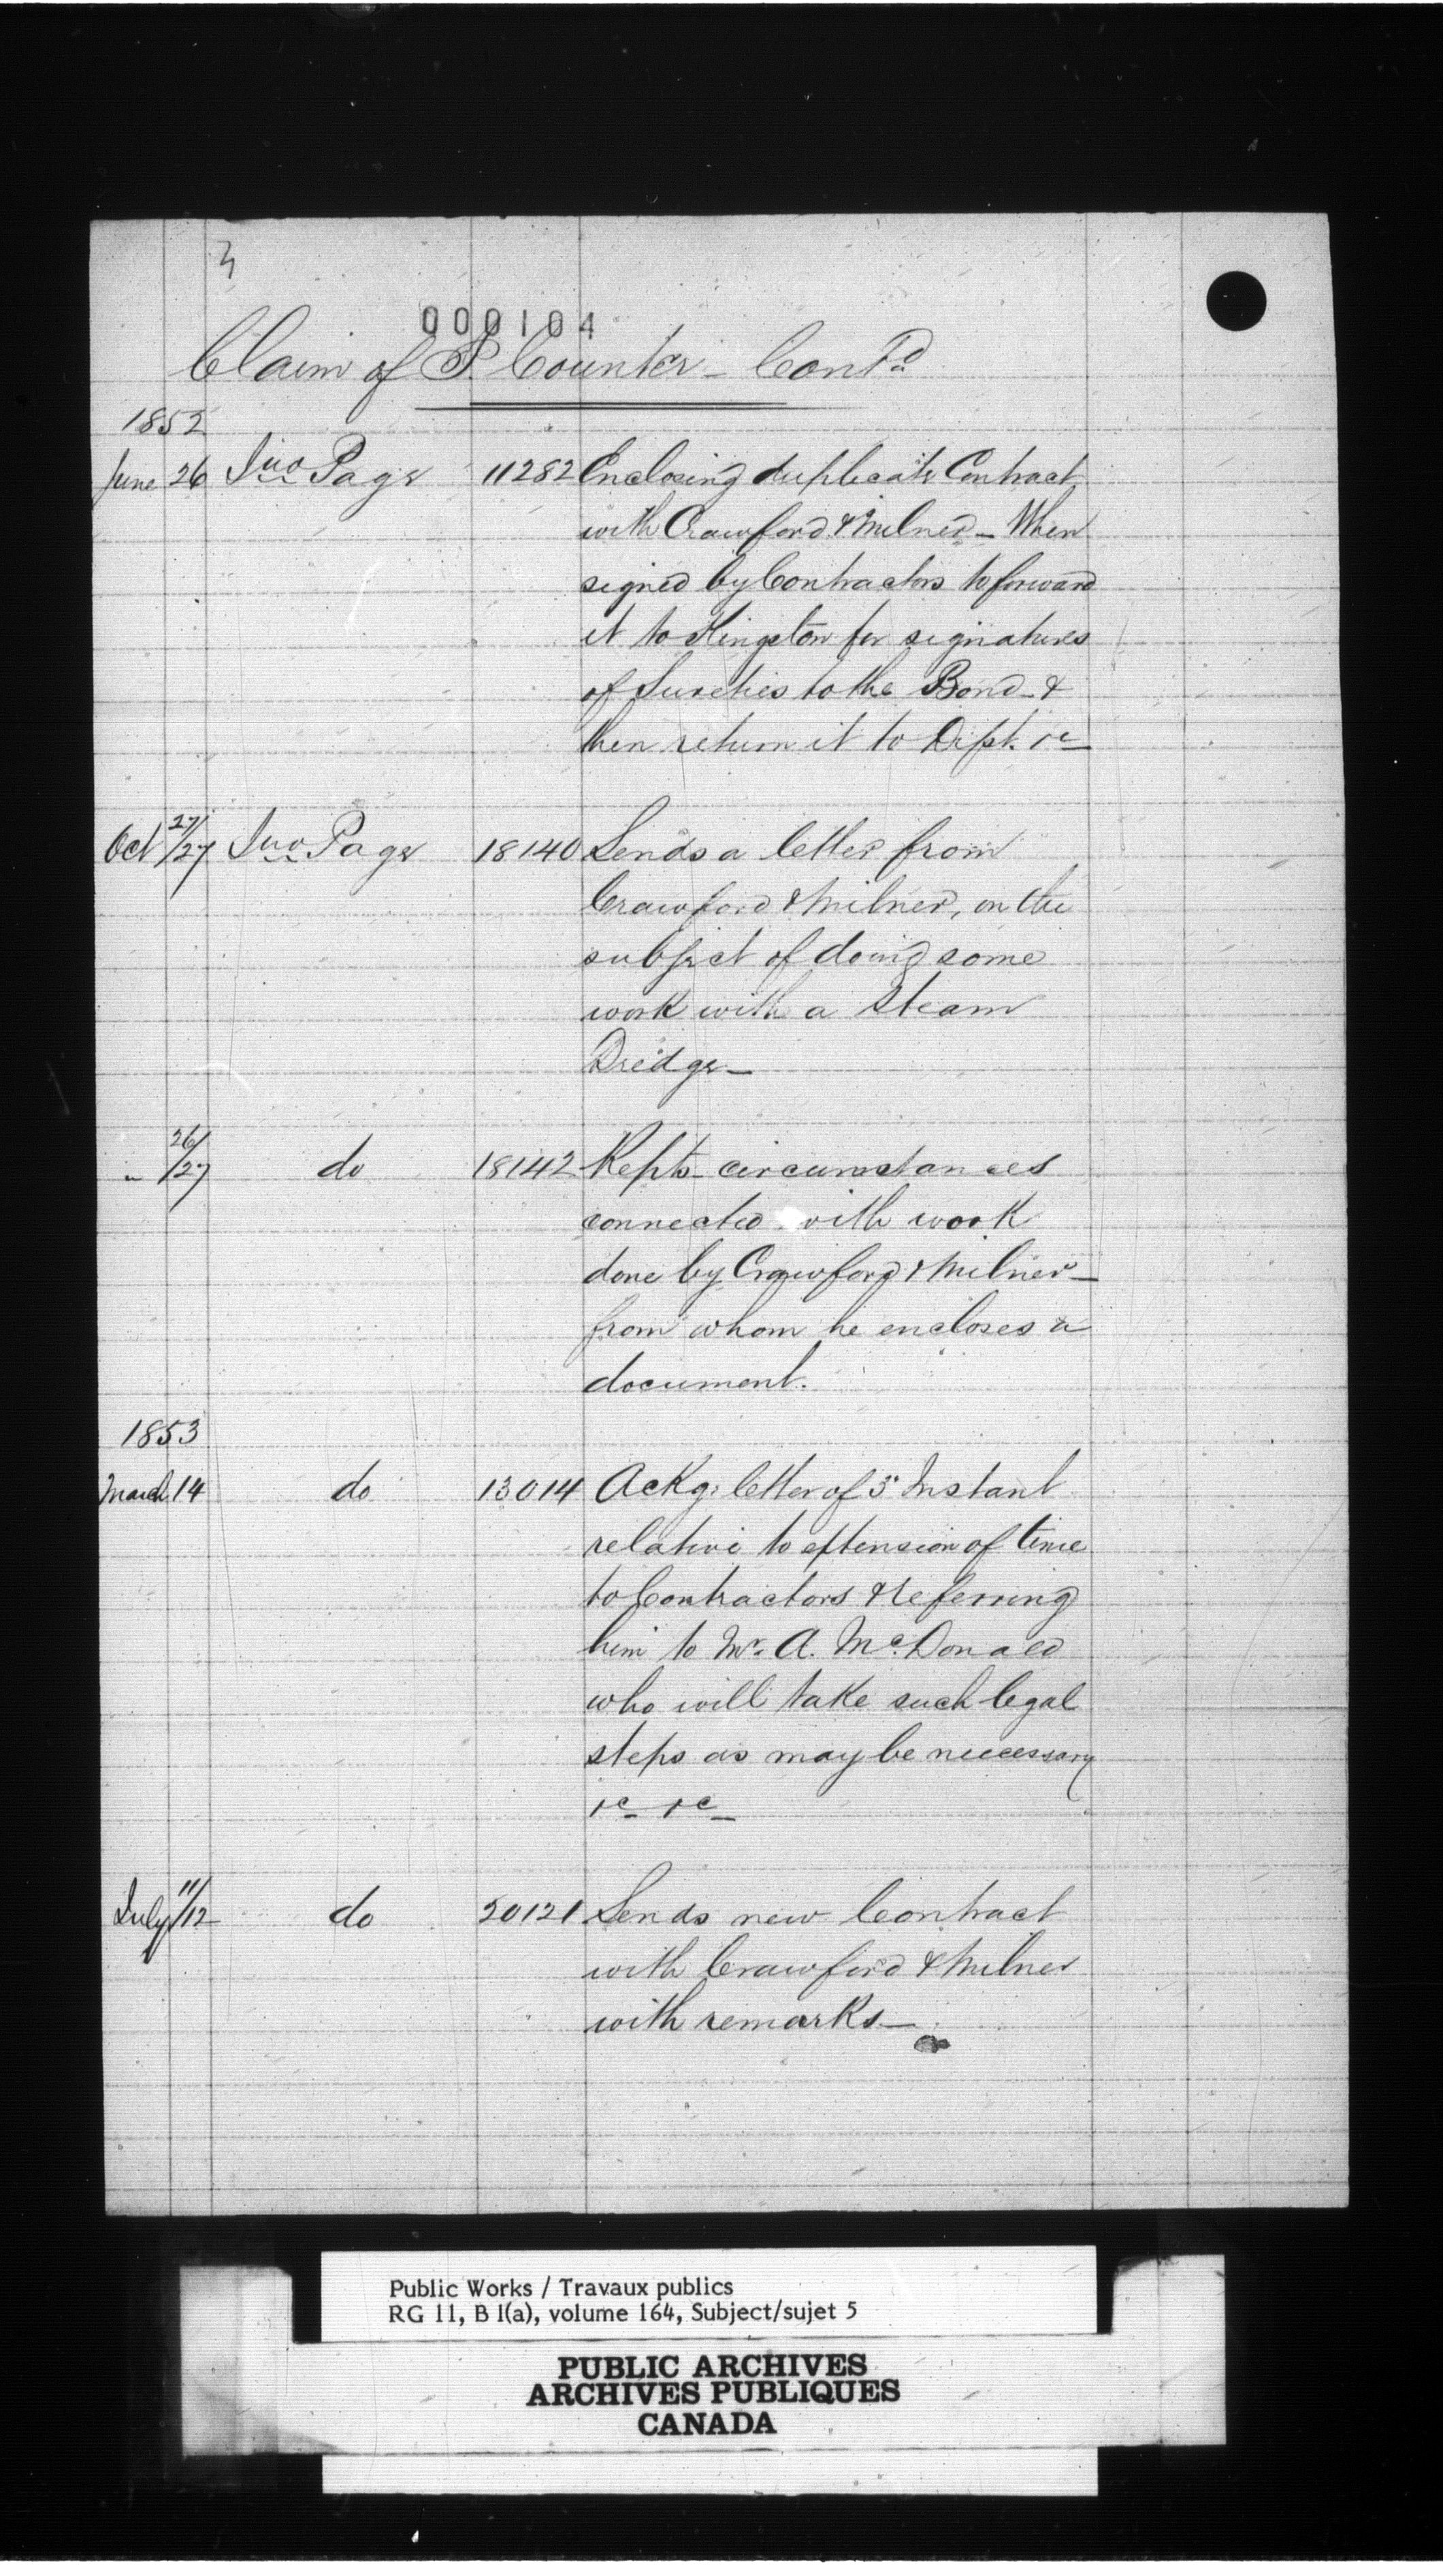 3
000104
Claim of J. Counter - Contd
1852
June 26 Jno Page 11282 Enclosing duplicate Contract
with Crawford & Milner - When
signed by Contractors to forward
it to Kingston for signatures
of Sureties to the Bond - &
then return it to Dept. &c
Oct 27/27 Jno Page 18140 Sends a letter from
Crawford & Milner, on the
subject of doing some
work with a Steam
Dredge -
" 26/27 do 18142 Repts circumstances
connected with work
done by Crawford & Milner -
from whom he encloses a
document.
1853
March 14 do 13014 Ackg: letter of 3d Instant
relative to extension of time
to Contractors & referring
him to Mr. A. McDonald
who will take such legal
steps as may be necessary
&c &c
July 11/12 do 20121 Sends new Contract
with Crawford & Milner
with remarks -
Public Works / Travaux publics
RG 11, B 1(a), volume 164, Subject/sujet 5
PUBLIC ARCHIVES
ARCHIVES PUBLIQUES
CANADA